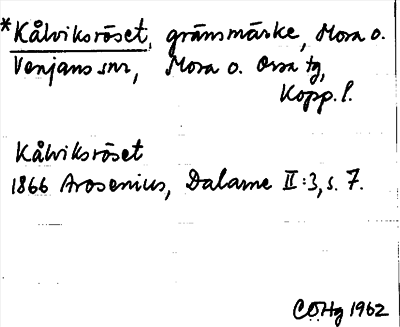 *Kålviksröset, gränsmärke, Mora o.
Venjans snr, Mora o. Orsa tg,
Kopp. l.
Kålviksröset
1866 Arosenius, Dalarne II:3, s. 7.
CÖHg 1962